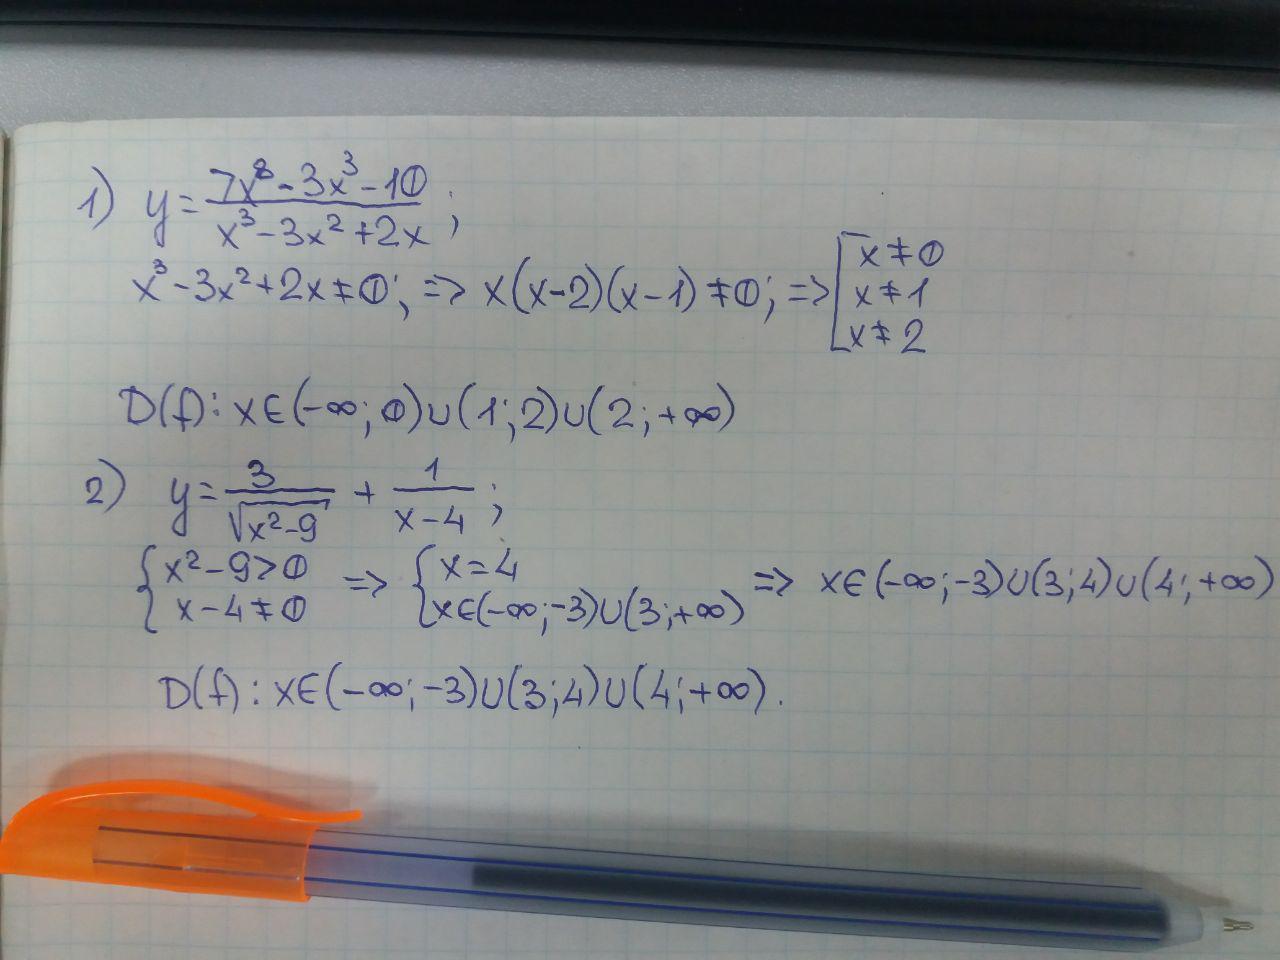 1) y = (7x⁸ - 3x³ - 10)/(x³ - 3x² + 2x);
x³ - 3x² + 2x ≠ 0; => x(x-2)(x-1) ≠ 0; => [x ≠ 0
x ≠ 1
x ≠ 2
D(f): x∈(-∞; 0)∪(1; 2)∪(2; +∞)
2) y = 3/√(x²-9) + 1/(x-4);
{x² - 9 > 0
x - 4 ≠ 0 => {x = 4
x∈(-∞;-3)∪(3;+∞) => x∈(-∞;-3)∪(3;4)∪(4;+∞)
D(f): x∈(-∞;-3)∪(3;4)∪(4;+∞).